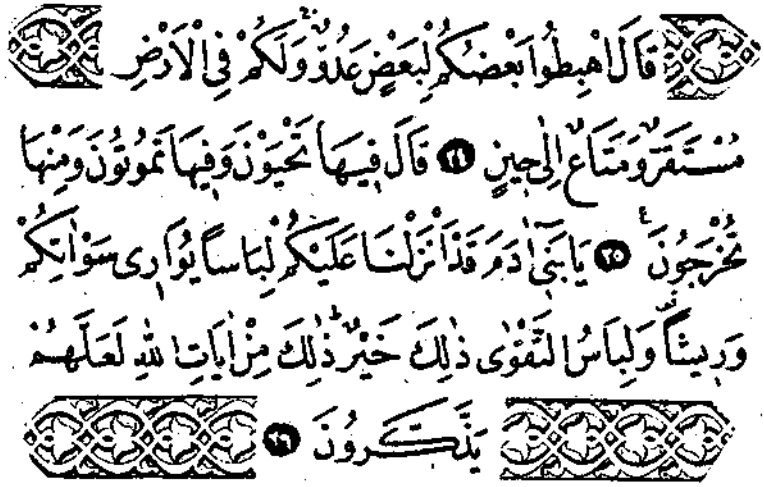 قَالَ اهْبِطُوا بَعْضُكُمْ لِبَعْضٍ عَدُوٌّ وَلَكُمْ فِي الْاَرْضِ
مُسْتَقَرٌّ وَمَتَاعٌ اِلٰى حِينٍ ﴿٢٤﴾ قَالَ فِيهَا تَحْيَوْنَ وَفِيهَا تَمُوتُونَ وَمِنْهَا
تُخْرَجُونَ ﴿٢٥﴾ يَا بَنِٓى اٰدَمَ قَدْ اَنْزَلْنَا عَلَيْكُمْ لِبَاسًا يُوَارِى سَوْاٰتِكُمْ
وَرِيشًا وَلِبَاسُ التَّقْوٰى ذٰلِكَ خَيْرٌ ذٰلِكَ مِنْ اٰيَاتِ اللّٰهِ لَعَلَّهُمْ
يَذَّكَّرُونَ ﴿٢٦﴾